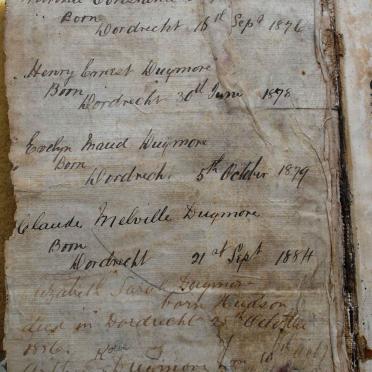 Born
Dordrecht 18th Sept 1876
Henry Ernest Dugmore
Born
Dordrecht 30th June 1878
Evelyn Maud Dugmore
Born
Dordrech 5th October 1879
Claude Melville Dugmore
Born
Dordrecht 21st Sept 1884
Elizabeth Dugmore
born Hudson
died in Dordrecht October
1886.
Dugmore